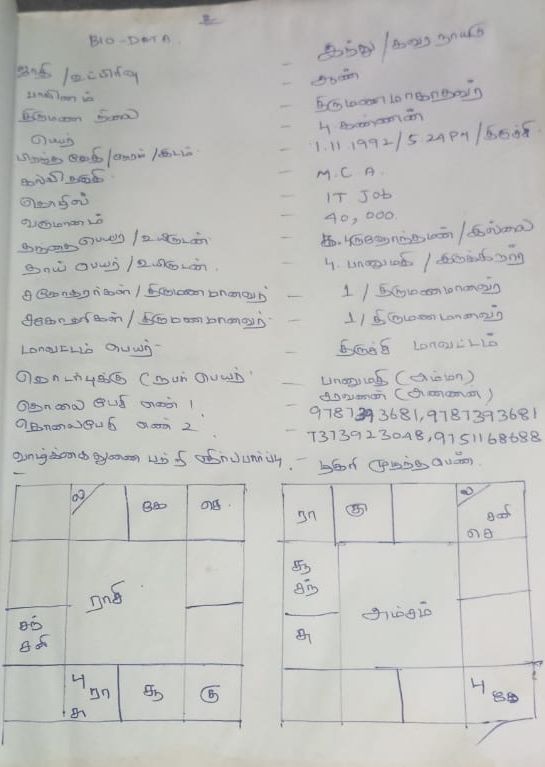 உ
BIO-DATA.
ஜாதி / உட்பிரிவு - இந்து / கவர நாயுடு
பாலினம் - ஆண்
திருமண நிலை - திருமணமாகாதவர்
பெயர் - பு கண்ணன்
பிறந்த தேதி / நேரம் / இடம். - 1.11 1992 / 5.24 PM / திருச்சி.
கல்வி தகுதி - M.C.A.
தொழில் - IT JOB
வருமானம் - 40,000
தந்தை பெயர் / உயிருடன் - / இல்லை
தாய் பெயர் / உயிருடன். - பு. பானுமதி / இருக்கிறார்
சகோதரர்கள் / திருமணமானவர் - 1 / திருமணமானவர்
சகோதரிகள் / திருமணமானவர் - 1 / திருமணமானவர்
மாவட்டம் பெயர் - திருச்சி மாவட்டம்
தொடர்புக்கு (நபர் பெயர்) - பானுமதி (அம்மா)
சரவணன் (அண்ணன்)
தொலை பேசி எண் 1 - 9787393681, 9787393681
தொலைபேசி எண் 2 - 7373923048, 9751168688
வாழ்க்கை துணை பற்றி எதிர்பார்ப்பு. - முடிந்த பெண்.
ல கே செ
ராசி
சந் சனி
பு ரா சு சூ குரு
ரா கு ல சனி செ
சூ சந்
அம்சம்
சு
பு கே